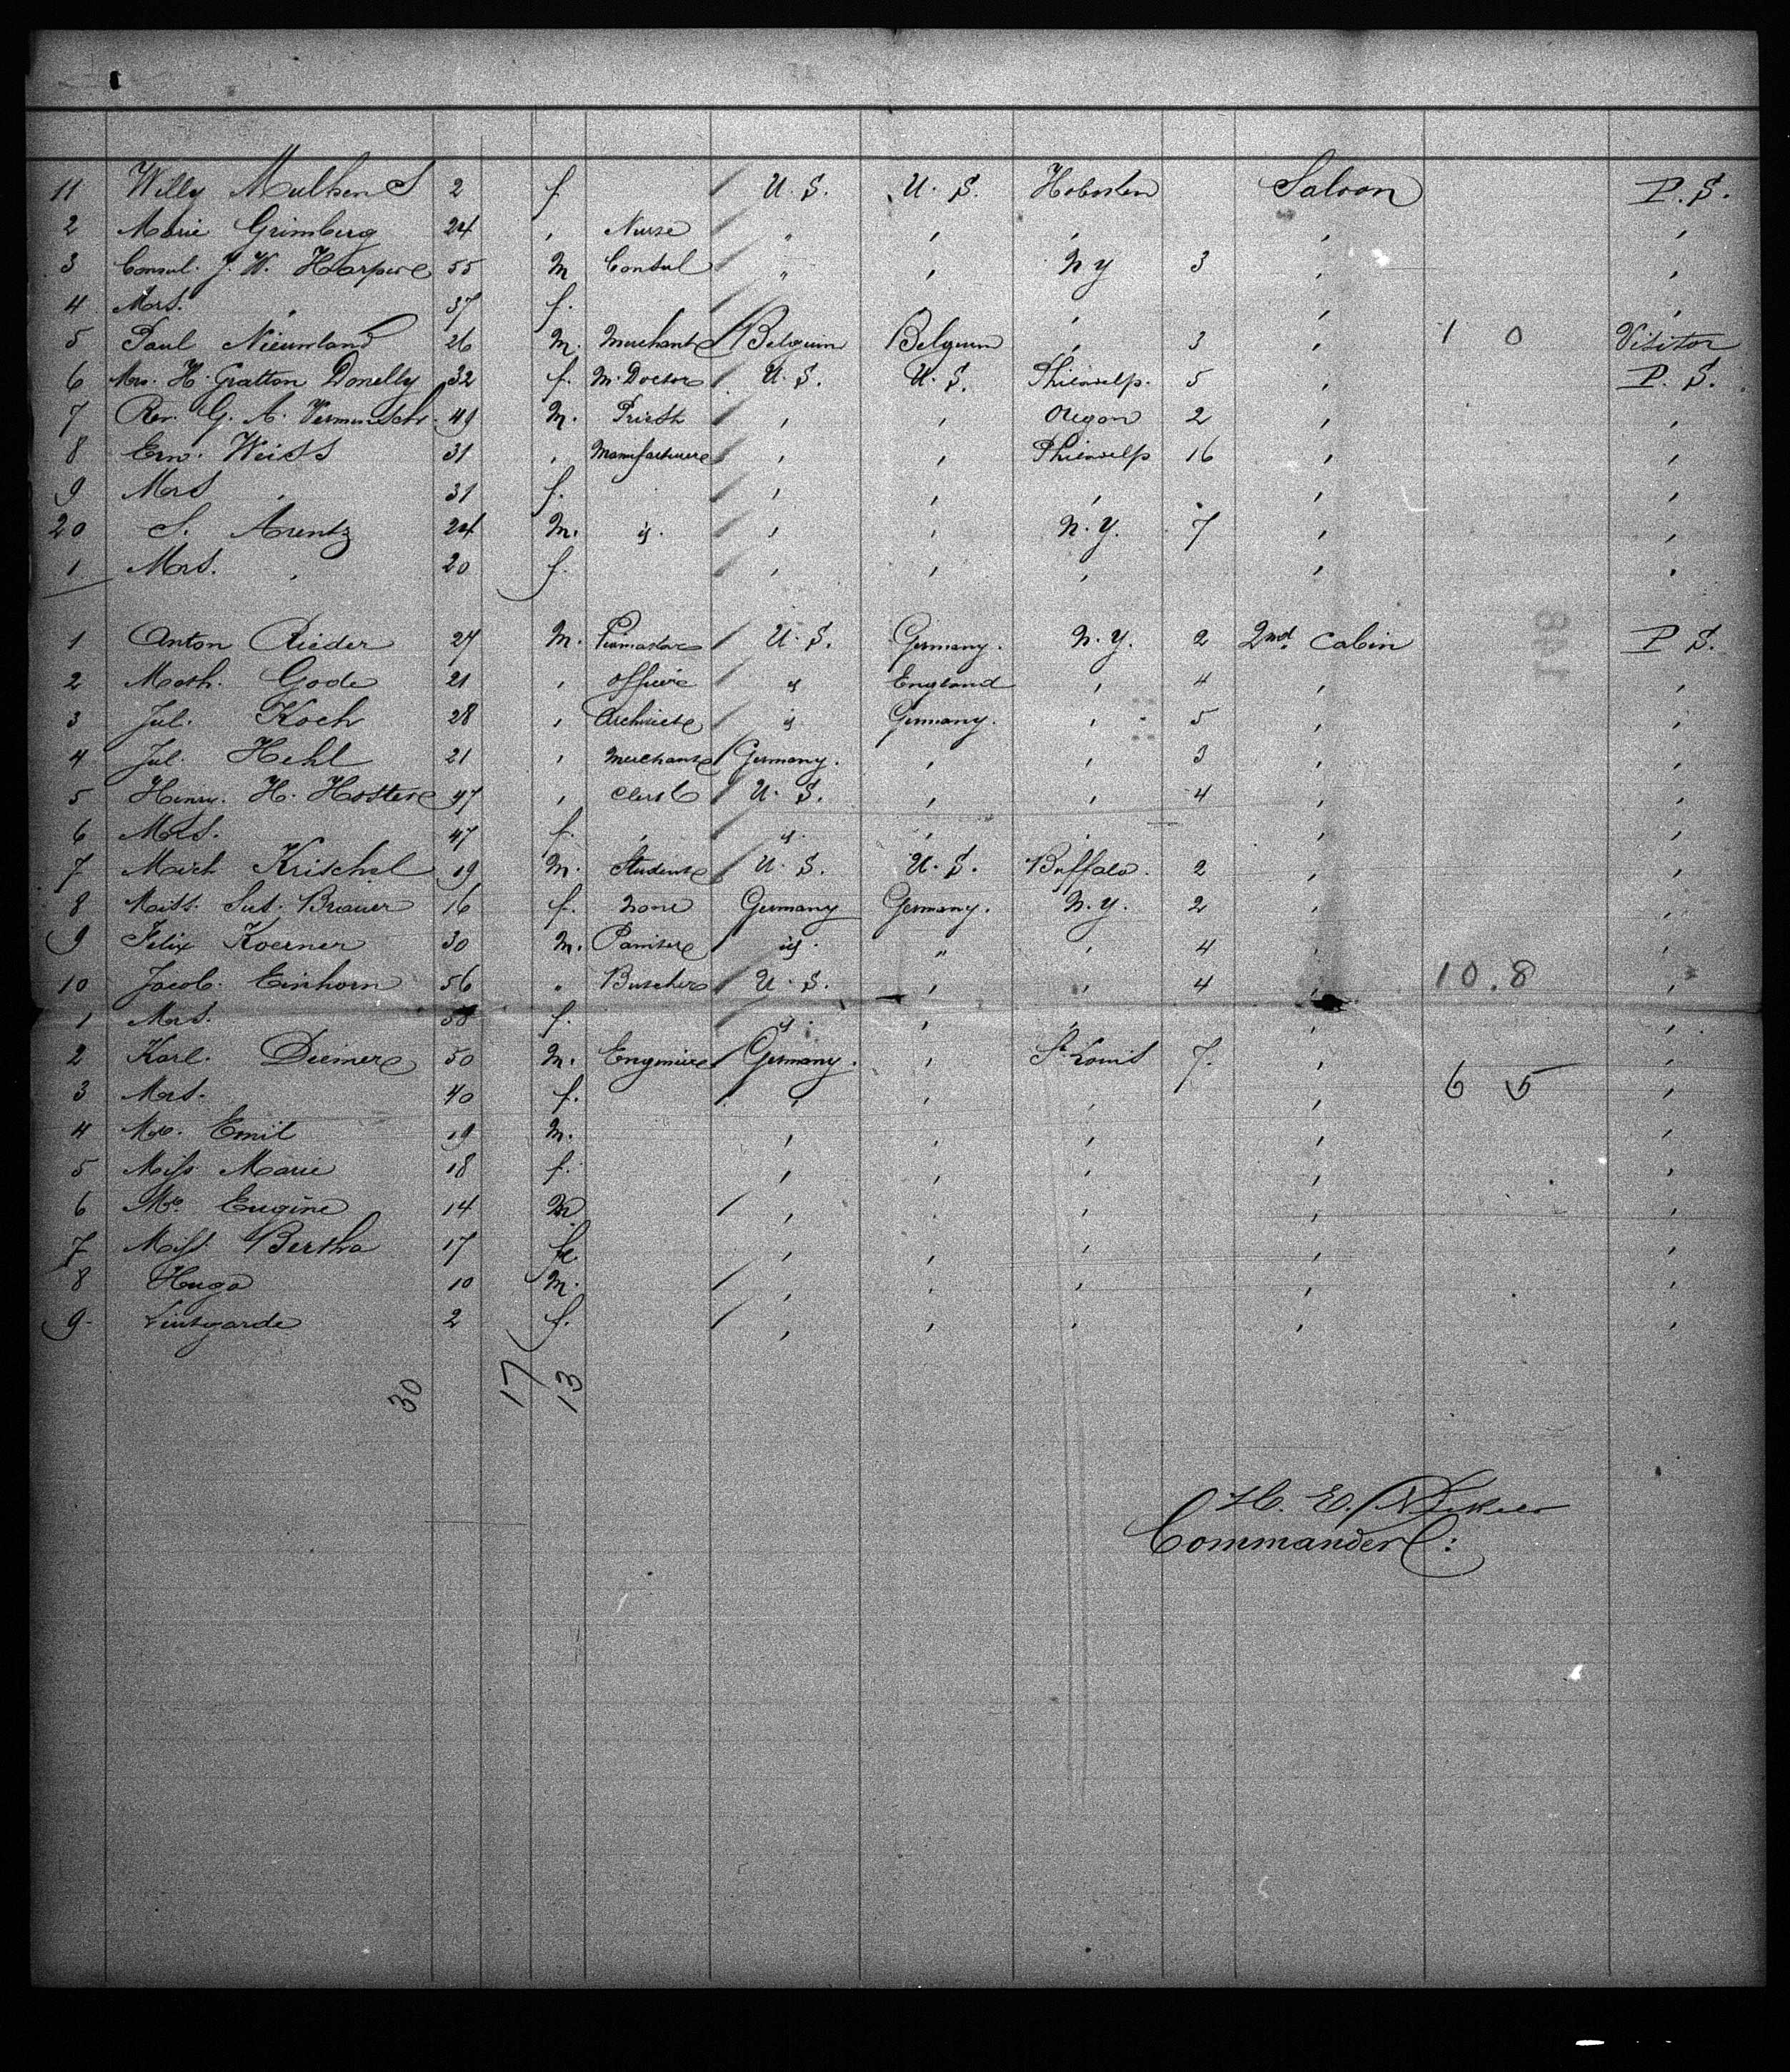 11 Willy Mulhens 2 f U. S. U. S. Hoboken Saloon P. S.
2 Marie Grimberg 24 , Nurse " , , , ,
3 Consul. J. W. Harper 55 M Consul " , N Y 3 , ,
4 Mrs. " 37 f. , , ,
5 Paul Nieumland 26 M. Merchant Belgium Belgium , 3 , 1 0 Visitor
6 Mrs. H. Gratton Donelly 32 f. M. Doctor U. S. U. S. Philadelp. 5 , P. S.
7 Rev. G. A. 49 M. Priest , , Oregon 2 , ,
8 Ern. Weiss 31 , Manufacturer , , Philadelp 16 , ,
9 Mrs , 31 f. , , , , ,
20 S. Arentz 24 M. id. , , N. Y. 7 , ,
1 Mrs. , 20 f. , , , , ,
1 Anton Rieder 27 M. U. S. Germany. N. Y. 2 2nd. Cabin P S.
2 Math. Gode 21 , Officer id England , 4 , ,
3 Jul. Koch 28 , Architect id Germany. , 5 , ,
4 Jul. Hehl 21 , Merchant Germany. , , 3 , ,
5 Henry. H. Hoster 47 , Clerk U. S. , , 4 , ,
6 Mrs. 47 f. , id. , , , ,
7 Mich Krischel 19 M. Student U. S. U. S. Buffalo. 2 , ,
8 Miss. Sus. Brauer 16 f. None Germany Germany. N. Y. 2 , ,
9 Felix Koerner 30 M. Painter id. " , 4 , ,
10 Jacob. Einhorn 56 " Butcher U. S. , , 4 , 10.8 ,
1 Mrs. 58 f. id. , , , ,
2 Karl. Diemer 50 M. Engenier Germany. , St Louis 7. , ,
3 Mrs. 40 f. , , , , 6 5 ,
4 Mr. Emil 19 M. , , , , ,
5 Miss Marie 18 f. , , , , ,
6 Mr. Eugine 14 M , , , , ,
7 Miss. Bertha 17 fe , , , , ,
8 Hugo 10 M. , , , , ,
9. Lintgarde 2 f. , , , , ,
30 17 13
H. E.
Commander: